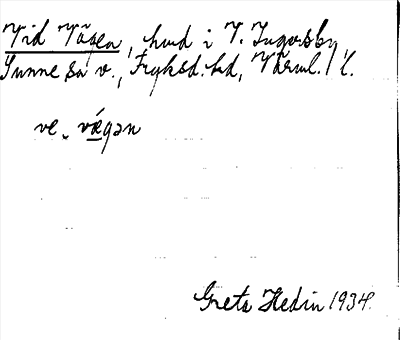 Vid Vägen, hmd i V. Ingorsby,
Sunne sn v., Fryksd. hd, Värml. l.
ve vǽgən
Greta Hedin 1934.